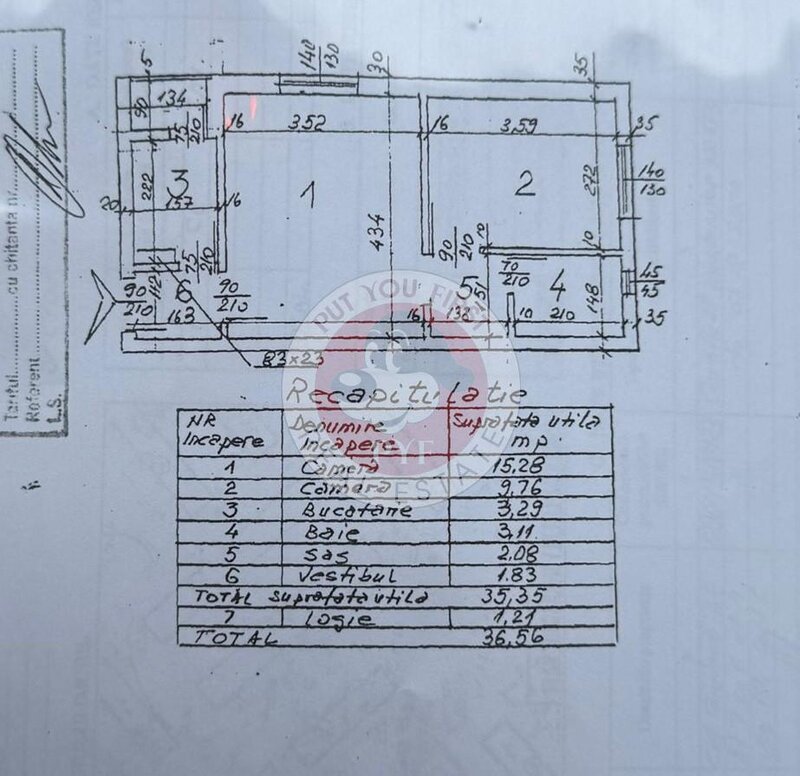 Tariful............cu chitanta nr............
Referent
L.S.
140
130
30
35
5
90
134
75
210
16
3.52
16
3.59
35
3
222
157
20
16
1
434
2
272
140
130
10
90
210
10
75
210
112
90
210
6
90
210
163
5
51
70
210
4
148
45
45
16
138
10
210
35
23x23
PUT YOU FIRST
ESTATE
Recapitulatie
NR incapere Denumire incapere Suprafata utila mp.
1 Camera 15,28
2 Camera 9,76
3 Bucatarie 3,29
4 Baie 3,11
5 Sas 2.08
6 Vestibul 1.83
TOTAL suprafata utila 35,35
7 Logie 1,21
TOTAL 36,56